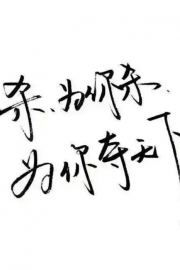 杀、为你杀、
为你夺天下